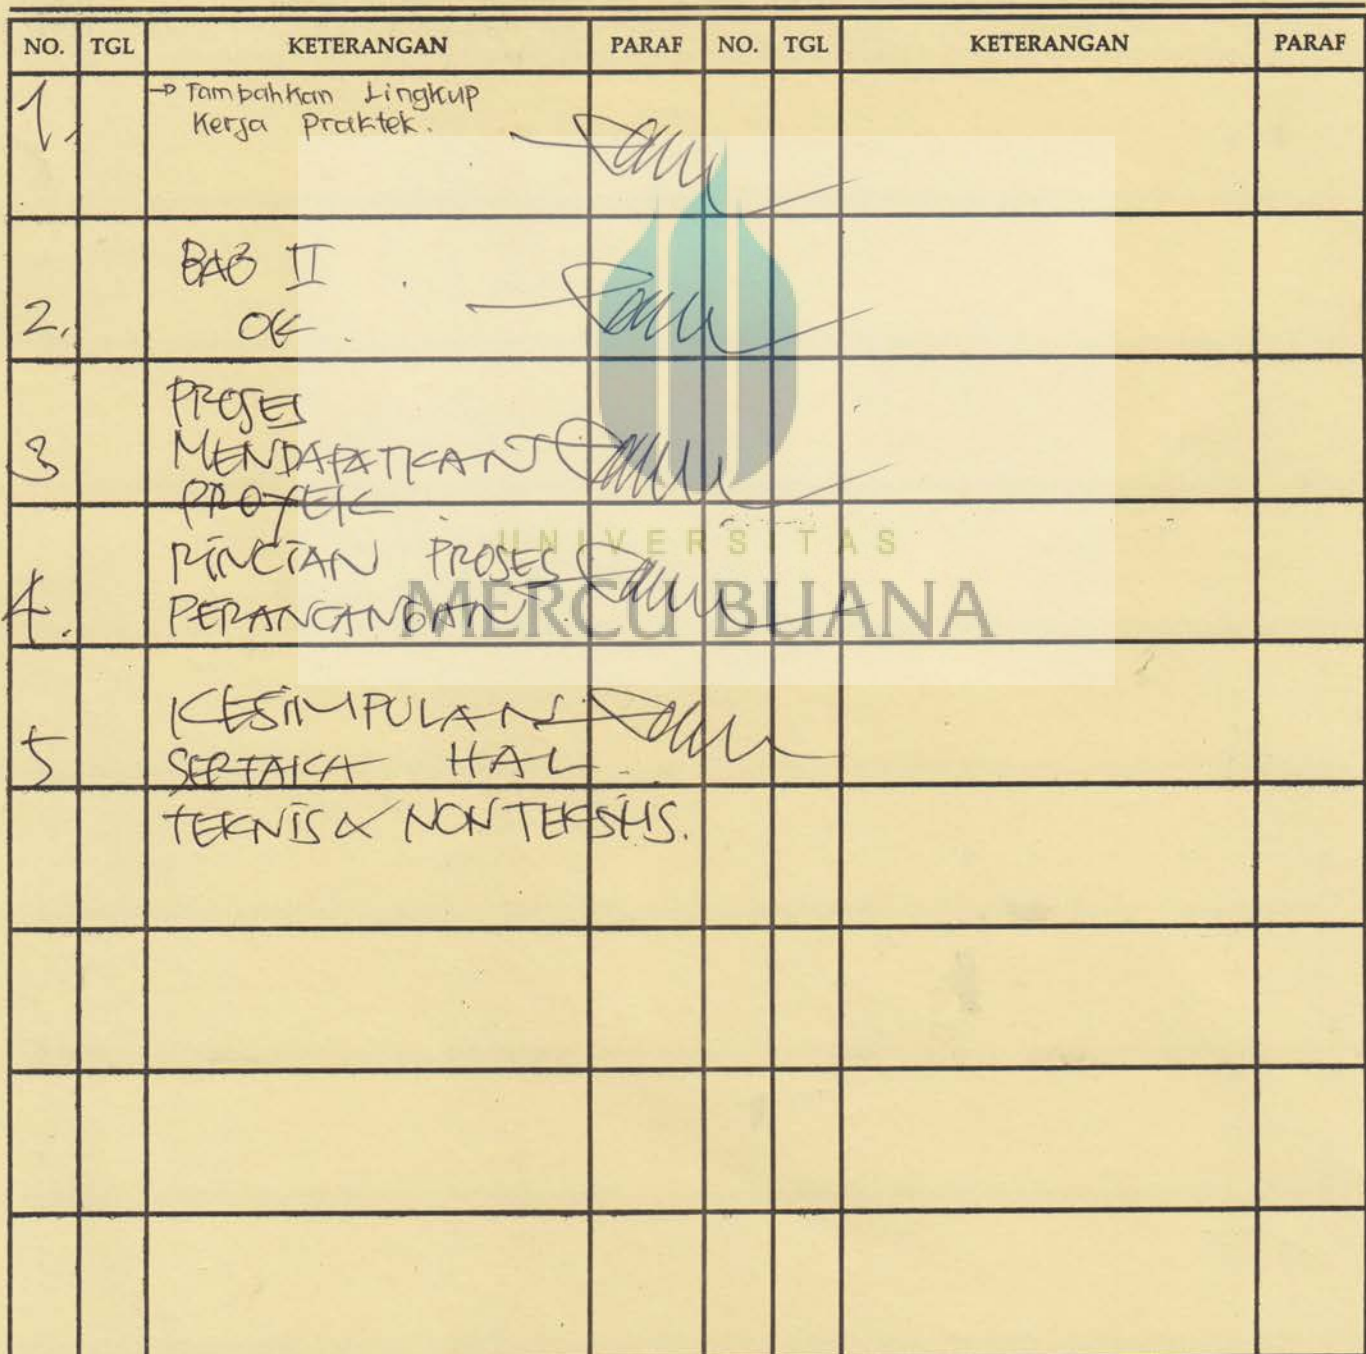 NO. TGL KETERANGAN PARAF NO. TGL KETERANGAN PARAF
1. → Tambahkan Lingkup
Kerja Praktek.
BAB II
2. OK
PROSES
3 MENDAPATKAN
PROYEK
RINCIAN PROSES
4. PERANCANGAN
KESIMPULAN
5 SERTAKA HAL
TEKNIS & NON TEKSHS.
UNIVERSITAS
MERCU BUANA